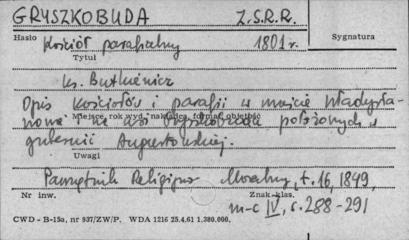 GRYSZKOBUDA Z.S.R.R.
Hasło Kościół parafialny 1801 r. Sygnatura
Tytuł
ks. Butkiewicz
Opis kościołów i parafii w mieście Władysła-
Miejsce, rok wyd., nakładca, format, objętość
nowie i we wsi Gryszkobuda położonych w
gubernii Augustowskiej.
Uwagi
Pamiętnik Religijno Moralny, t. 16, 1849,
Nr inw. Znak klas.
m-c IV, s. 288-291
CWD - B-15a, nr 937/ZW/P. WDA 1216 25.4.61 1.380.000.